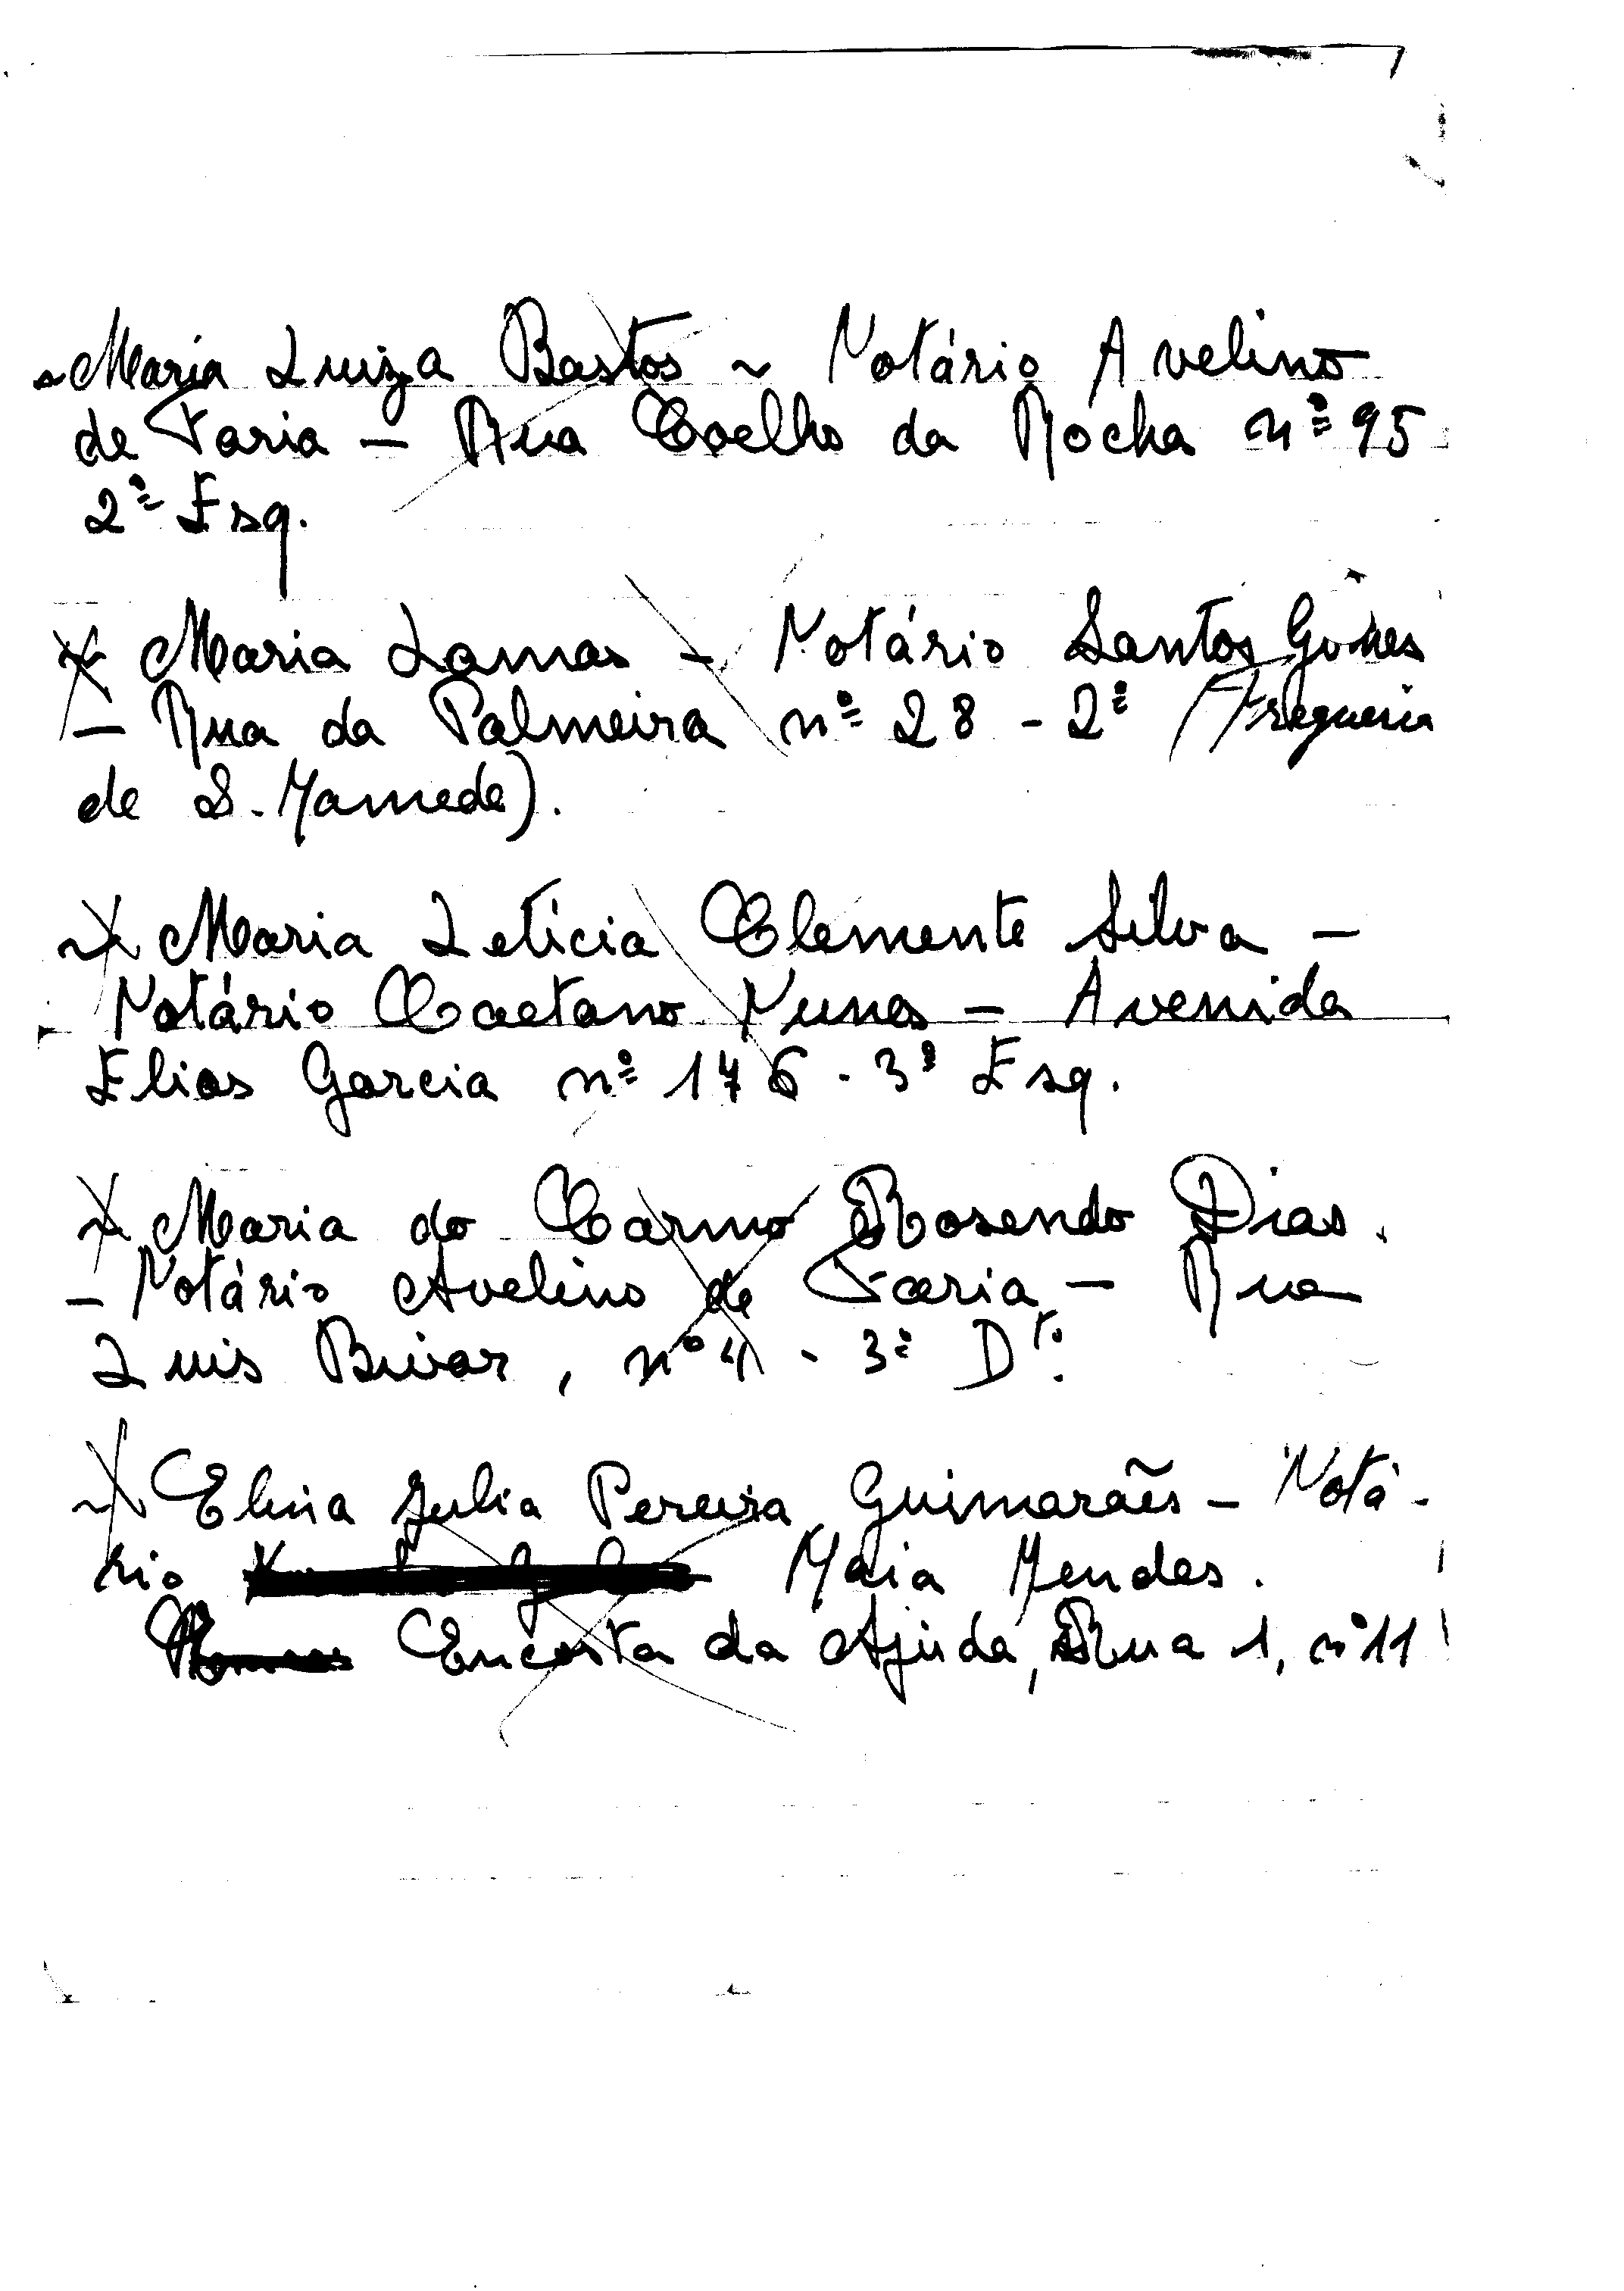 - Maria Luiza Bastos - Notário Avelino
de Faria - Rua Coelho da Rocha nº 95
2º Esq.
X Maria Lamas - Notário Santos Gomes
- Rua da Palmeira nº 28 - 2º (Freguesia
de S. Mamede).
X Maria Letícia Clemente Silva -
Notário Caetano Nunes - Avenida
Elias Garcia nº 176 - 3º Esq.
X Maria do Carmo Rosendo Dias.
- Notário Avelino de Faria - Rua
Luis Bivar, nº 4 - 3º Dto.
X Elina Julia Pereira Guimarães - Notá-
rio Maia Mendes.
Encosta da Ajuda, Rua 1, nº 11